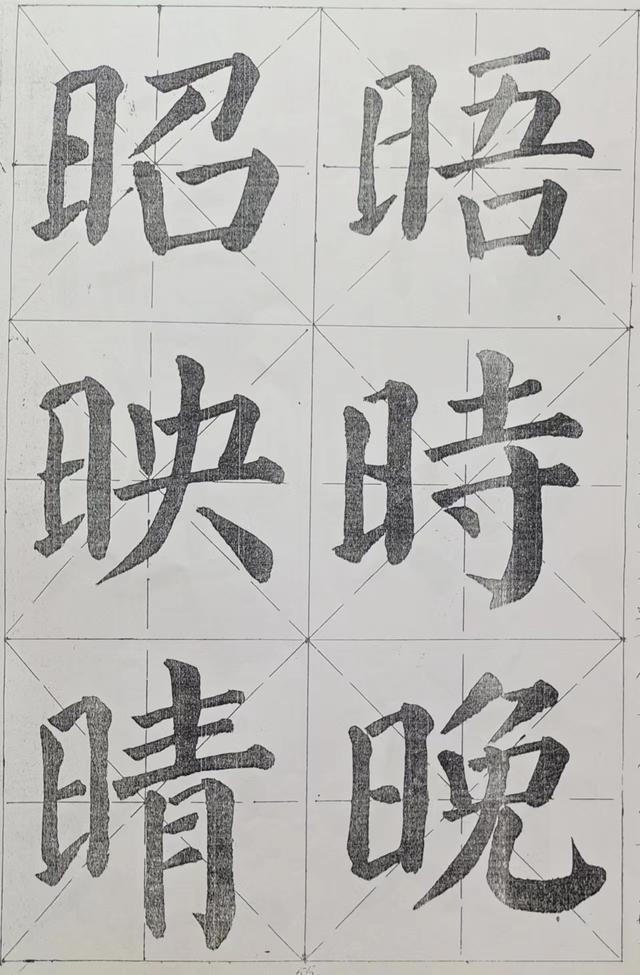 昭晤
映時
晴晚